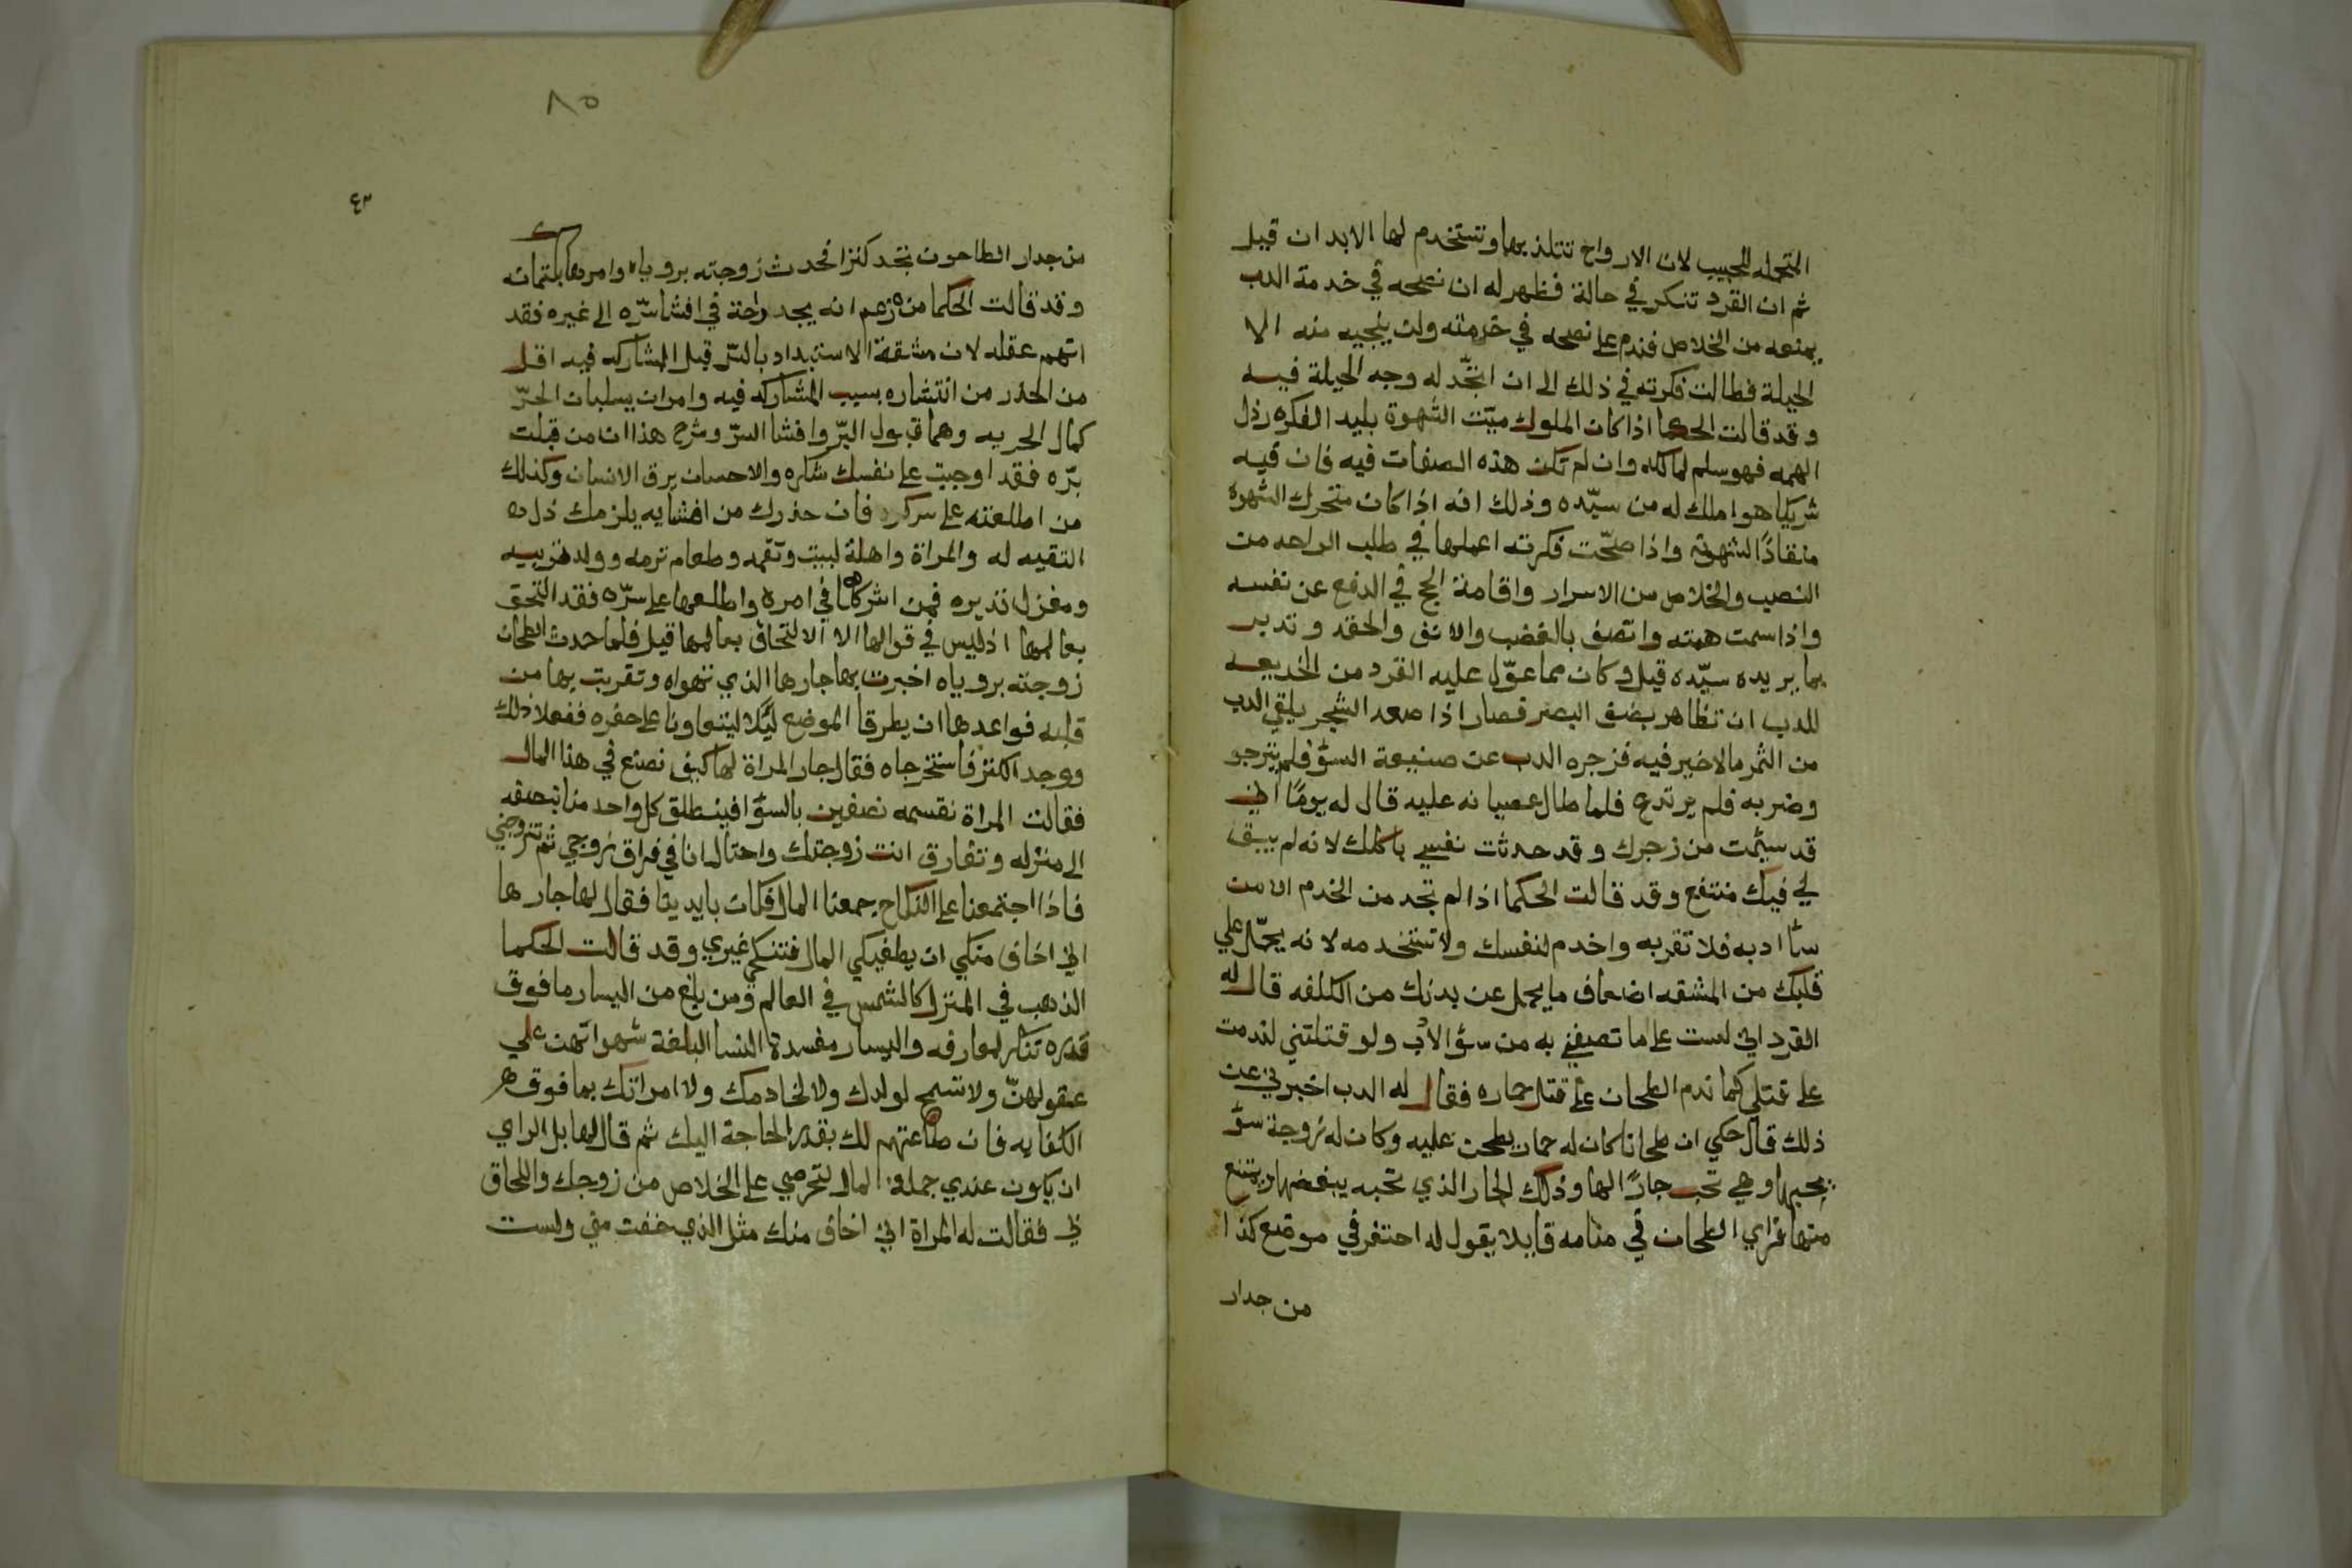 المتحمله للحبيب لان الارواح تتلذ بها وتستخدم لها الابدان قيل
ثم ان القرد تنكر في حالة فظهر له ان نصحه في خدمة الدب
يمنعه من الخلاص فندم على نصحه في خدمته ولن ينجيه منه الا
الحيلة فطالت فكرته في ذلك الى ان اتجّد له وجه الحيلة فيه
وقد قالت الحكما اذا كان المملوك ميّت الشهوة بليد الفكره رذل
الهمه فهو سلم لمالكه وان لم تكن هذه الصفات فيه فان فيه
شريكا هو املك له من سيّده وذلك انه اذا كان متحرك الشهوة
منقادًا لشهوته واذا صحّت فكرته اعملها في طلب الراحه من
النصب والخلاص من الاسرار واقامة الحجج في الدفع عن نفسه
واذا سمت همته واتصف بالغضب والانف والحقد وتدبر
بما يريده سيّده قيل وكان مما عوّل عليه القرد من الخديعه
للدب ان تظاهر بضعف البصر فصار اذا صعد الشجر يلقي للدب
من الثمر ما لا خير فيه فزجره الدب عن صنيعة السؤ فلم ينزجر
وضربه فلم يرتدع فلما طال عصيانه عليه قال له يومًا اني
قد سئمت من زجرك وقد حدثت نفسي باكلك لانه لم يبق
لي فيك منتفع وقد قالت الحكما اذا لم تجد من الخدم الا من
سٔا ادبه فلا تقربه واخدم لنفسك ولا تستخدمه لانه يحمّل علي
قلبك من المشقه اضعاف ما يحمل عن بدنك من الكلفه قال له
القرد اني لست على ما تصفني به من سؤ الادب ولو قتلتني لندمت
على قتلي كما ندم الطحان على قتل حماره فقال له الدب اخبرني عن
ذلك قال حكي ان طحانا كان له حمار يطحن عليه وكان له زوجة سؤ
يحبها وهي تحب جارًا لها وذلك الجار الذي تحبه يبغضها ويمتنع
منها فراي الطحان في منامه قايلا يقول له احتفر في موضع كذا
من جدار
٨٥
٤٣
من جدار الطاحون تجد كنزا فحدث زوجته برؤياه وامرها بكتمانه
وقد قالت الحكما من زعم انه يجد راحة في افشا سرّه الى غيره فقد
اتهم عقله لان مشقة الاستبداد بالسّر قبل المشاركه فيه اقل
من الحذر من انتشاره بسبب المشاركه فيه وامران يسلبان الحرّ
كمال الحريه وهما قبول البرّ وافشا السرّ وشرح هذا ان من قبلت
برّه فقد اوجبت على نفسك شكره والاحسان يرق الانسان وكذلك
من اطلعته على سرك فان حذرك من افشايه يلزمك ذل
التقيه له والمراة واهلة لبيت وتقمه وطعام ترمه وولد تربيه
ومغزل تديره فمن اشركها في امره واطلعها على سرّه فقد التحق
بعالمها اذ ليس في قوالها الا الالتحاق بعالمها قيل فلما حدث الطحان
زوجته برؤياه اخبرت بها جارها الذي تهواه وتقربت بها من
قلبه فواعدها ان يطرقا الموضع ليًلا ليتعاونا على حفره ففعلا ذلك
ووجدا الكنز فاستخرجاه فقال جار المراة لها كيف نصنع في هذا المال
فقالت المراة نقسمه نصفين بالسوا فينطلق كل واحد منا بنصفه
الى منزله وتفارق انت زوجتك واحتال انا في فراق زوجي ثم تتزوجني
فاذا اجتمعنا على النكاح جمعنا المال فكان بايدينا فقال لها جارها
اني اخاف منكي ان يطغيكي المال فتنكحي غيري وقد قالت الحكما
الذهب في المنزل كالشمس في العالم ومن بلغ من اليسار ما فوق
قدره تنكر لمعارفه واليسار مفسدة النسا البلغة شهواتهن علي
عقولهنّ ولا تسمح لولدك ولا لخادمك ولا امراتك بما فوق
الكفايه فان طاعتهم لك بقدر الحاجة اليك ثم قال لها بل الراي
ان يكون عندي جملة المال لتحرصي على الخلاص من زوجك واللحاق
لي فقالت له المراة اني اخاف منك مثل الذي خفت مني ولست